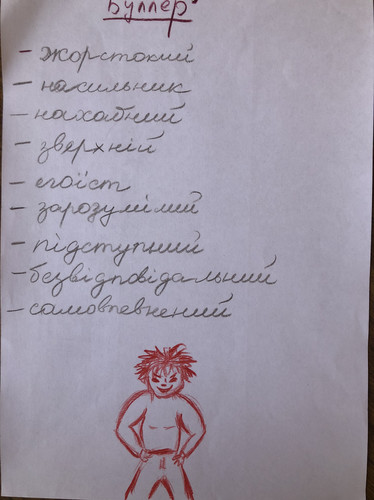 Буллер
- жорстокий
- насильник
- нахабний
- зверхній
- егоїст
- зарозумілий
- підступний
- безвідповідальний
- самовпевнений